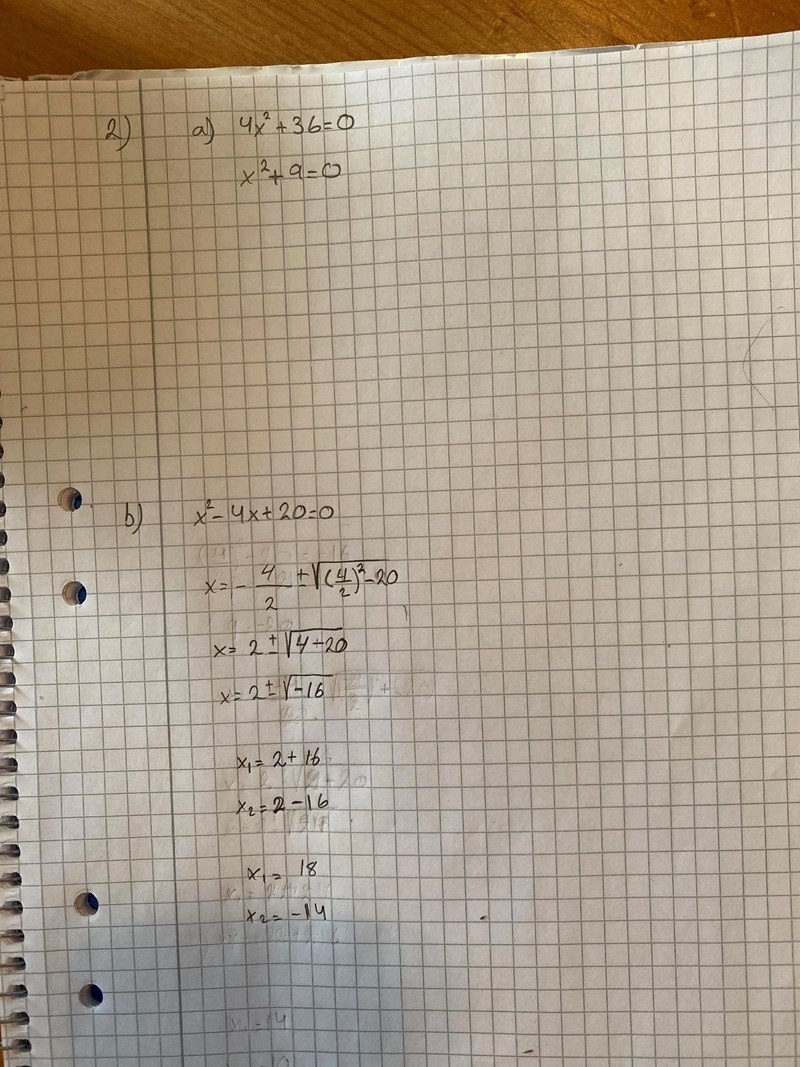 2) a) 4x²+36=0
x²+9=0
b) x²-4x+20=0
x=-4/2±√(4/2)²-20
x=2±√4-20
x=2±√-16
x₁=2+16
x₂=2-16
x₁=18
x₂=-14